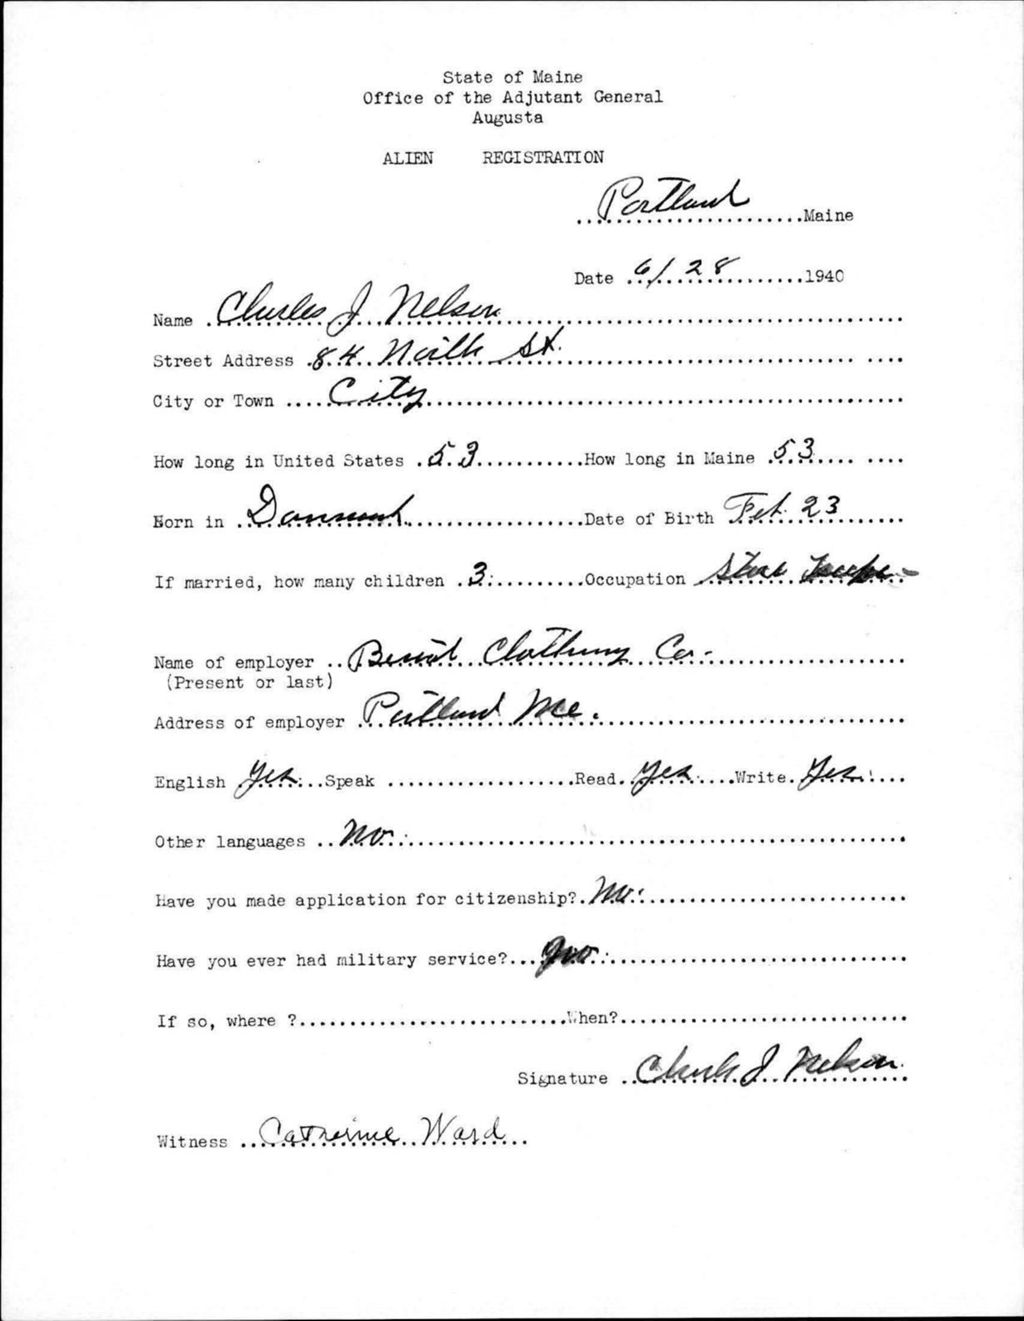 State of Maine
Office of the Adjutant General
Augusta
ALIEN REGISTRATION
Portland Maine
Date 6/28 1940
Name Charles J Nelson
Street Address 84 North St.
City or Town City
How long in United States 53 How long in Maine 53
Born in Denmark Date of Birth Feb 23
If married, how many children 3. Occupation Store
Name of employer Benoit Clothing Co.
(Present or last)
Address of employer Portland Me.
English Yes Speak Read Yes Write Yes
Other languages No.
Have you made application for citizenship? No.
Have you ever had military service? No
If so, where ? When?
Signature Charles J Nelson
Witness Catherine Ward